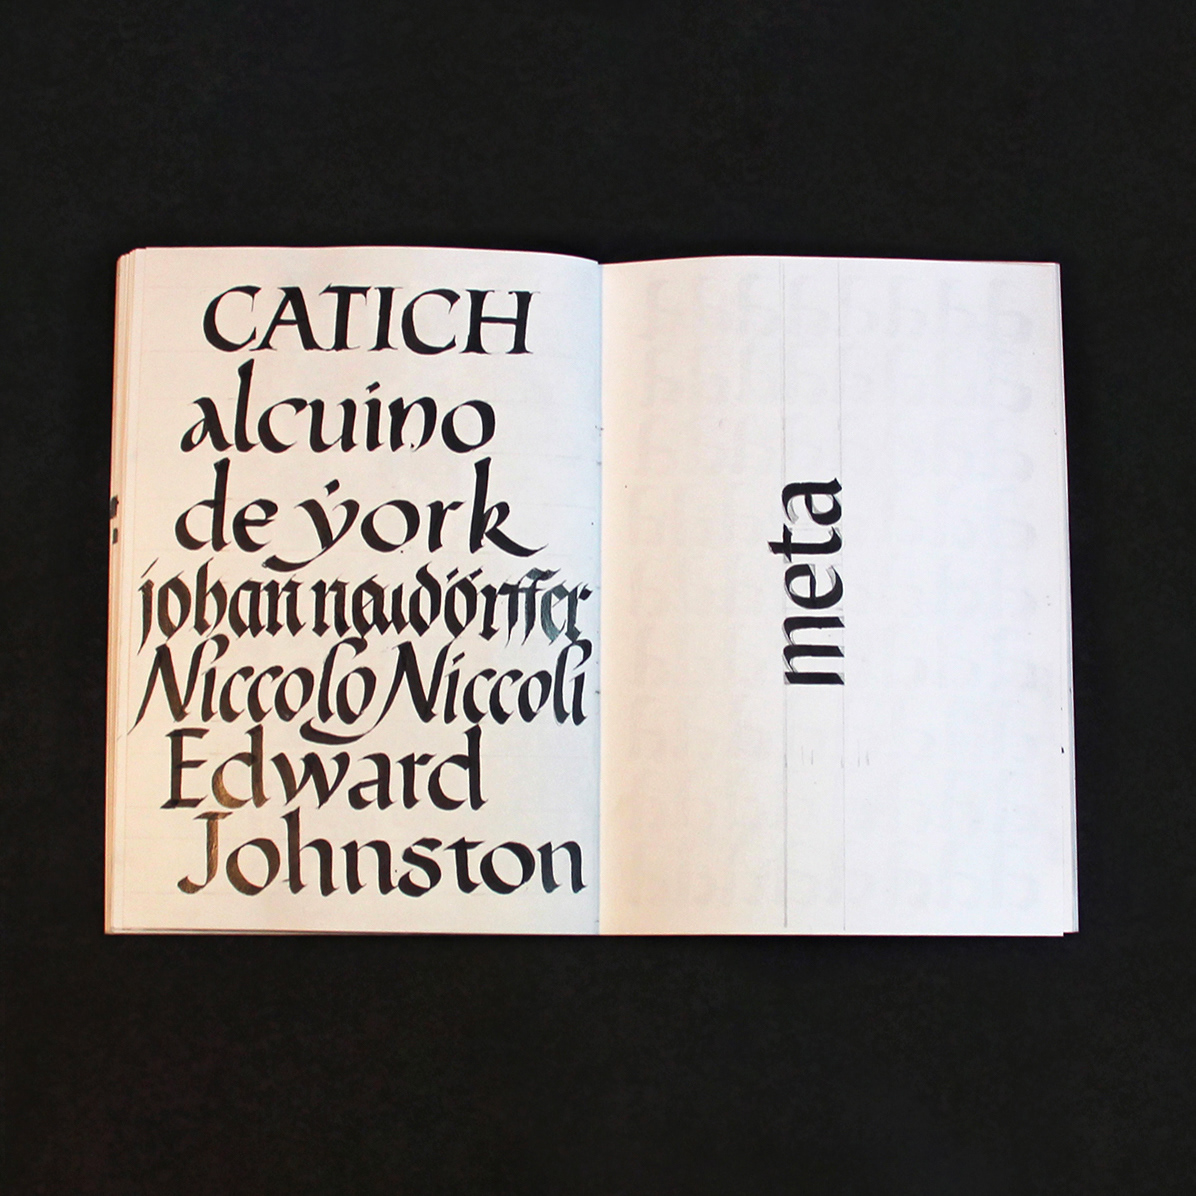 CATICH
alcuino
de york
johan neudörffer
Niccolo Niccoli
Edward
Johnston
meta